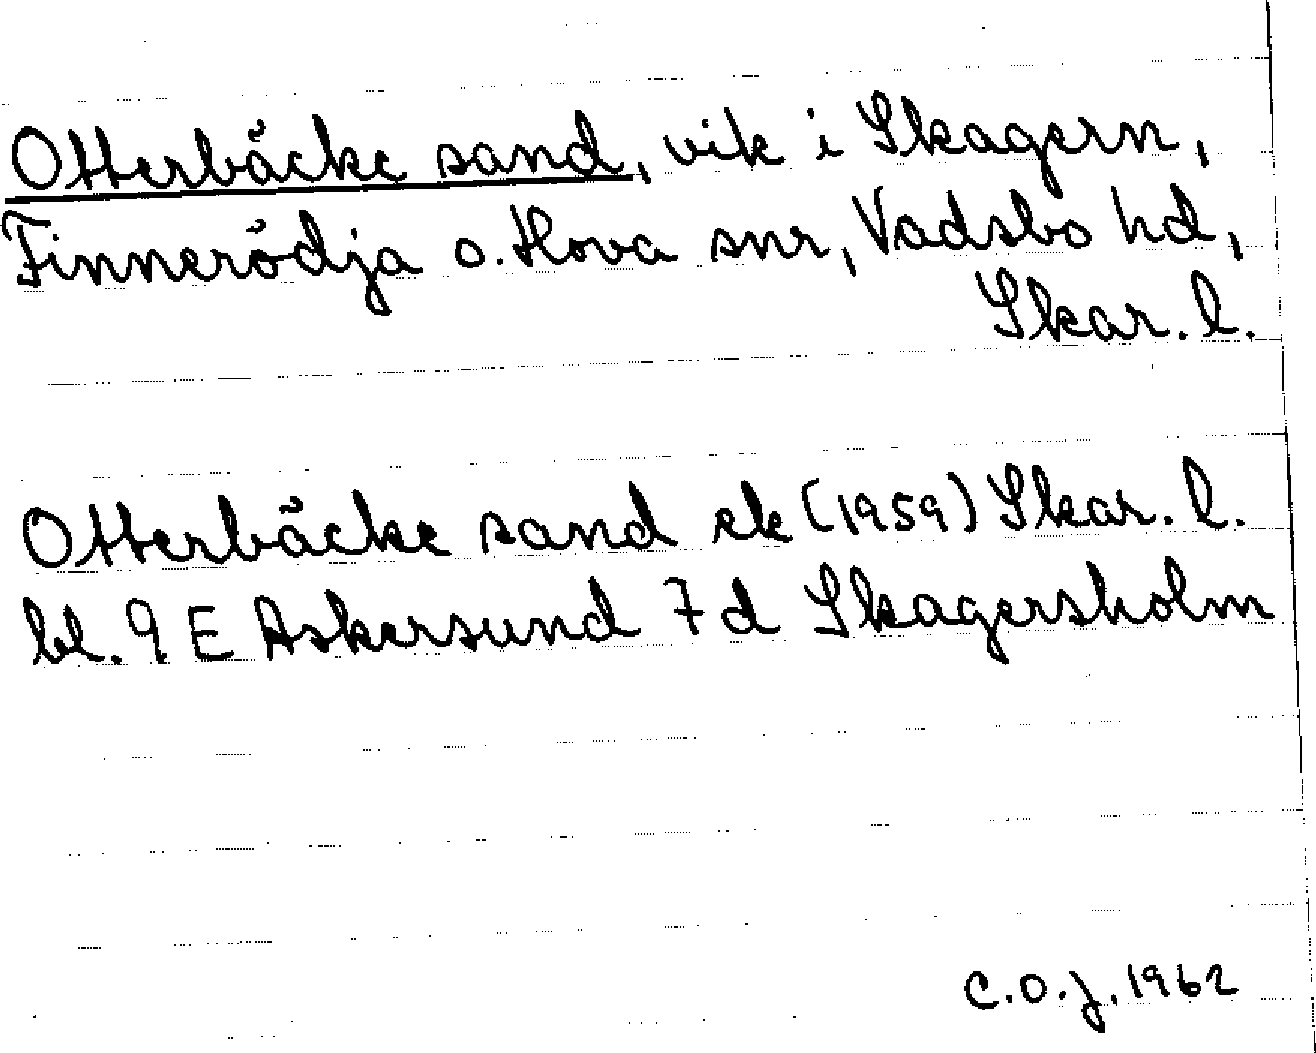 Otterbäcke sand, vik i Skagern,
Finnerödja o. Hova snr, Vadsbo hd,
Skar. l.
Otterbäcke sand ek (1959) Skar. l.
bl. 9 E Askersund 7 d Skagersholm
C.O.J. 1962